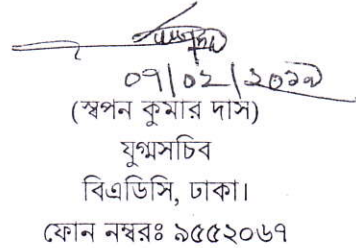 ০৭/০২/২০১৯
(স্বপন কুমার দাস)
যুগ্মসচিব
বিএডিসি, ঢাকা।
ফোন নম্বরঃ ৯৫৫২০৬৭